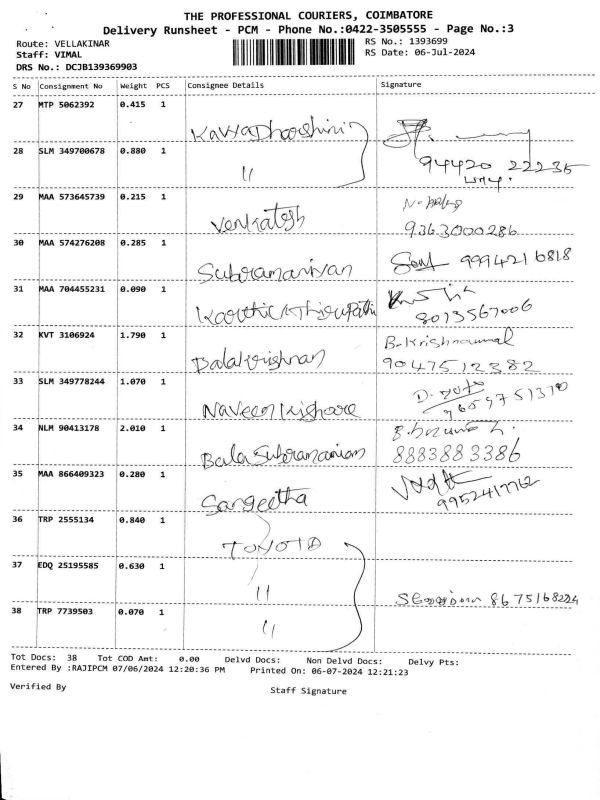 THE PROFESSIONAL COURIERS, COIMBATORE
Delivery Runsheet - PCM - Phone No.:0422-3505555 - Page No.:3
Route: VELLAKINAR RS No.: 1393699
Staff: VIMAL RS Date: 06-Jul-2024
DRS No.: DCJB139369903
S No Consignment No Weight PCS Consignee Details Signature
27 MTP 5062392 0.415 1 Kavyadharshini
28 SLM 349700678 0.880 1 " 94420 22235
29 MAA 573645739 0.215 1 Venkatesh 9363000286
30 MAA 574276208 0.285 1 Subramaniyan 9994216818
31 MAA 704455231 0.090 1 Karthick Thirupathi 8013567006
32 KVT 3106924 1.790 1 Balakrishnan B. Krishnammal 9047512382
33 SLM 349778244 1.070 1 Naveen Kishore
34 NLM 90413178 2.010 1 Bala Subramaniam 8883883386
35 MAA 866409323 0.280 1 Sangeetha 9952417762
36 TRP 2555134 0.840 1 TOYOTO
37 EDQ 25195585 0.630 1 "
38 TRP 7739503 0.070 1 "
Tot Docs: 38 Tot COD Amt: 0.00 Delvd Docs: Non Delvd Docs: Delvy Pts:
Entered By :RAJIPCM 07/06/2024 12:20:36 PM Printed On: 06-07-2024 12:21:23
Verified By Staff Signature